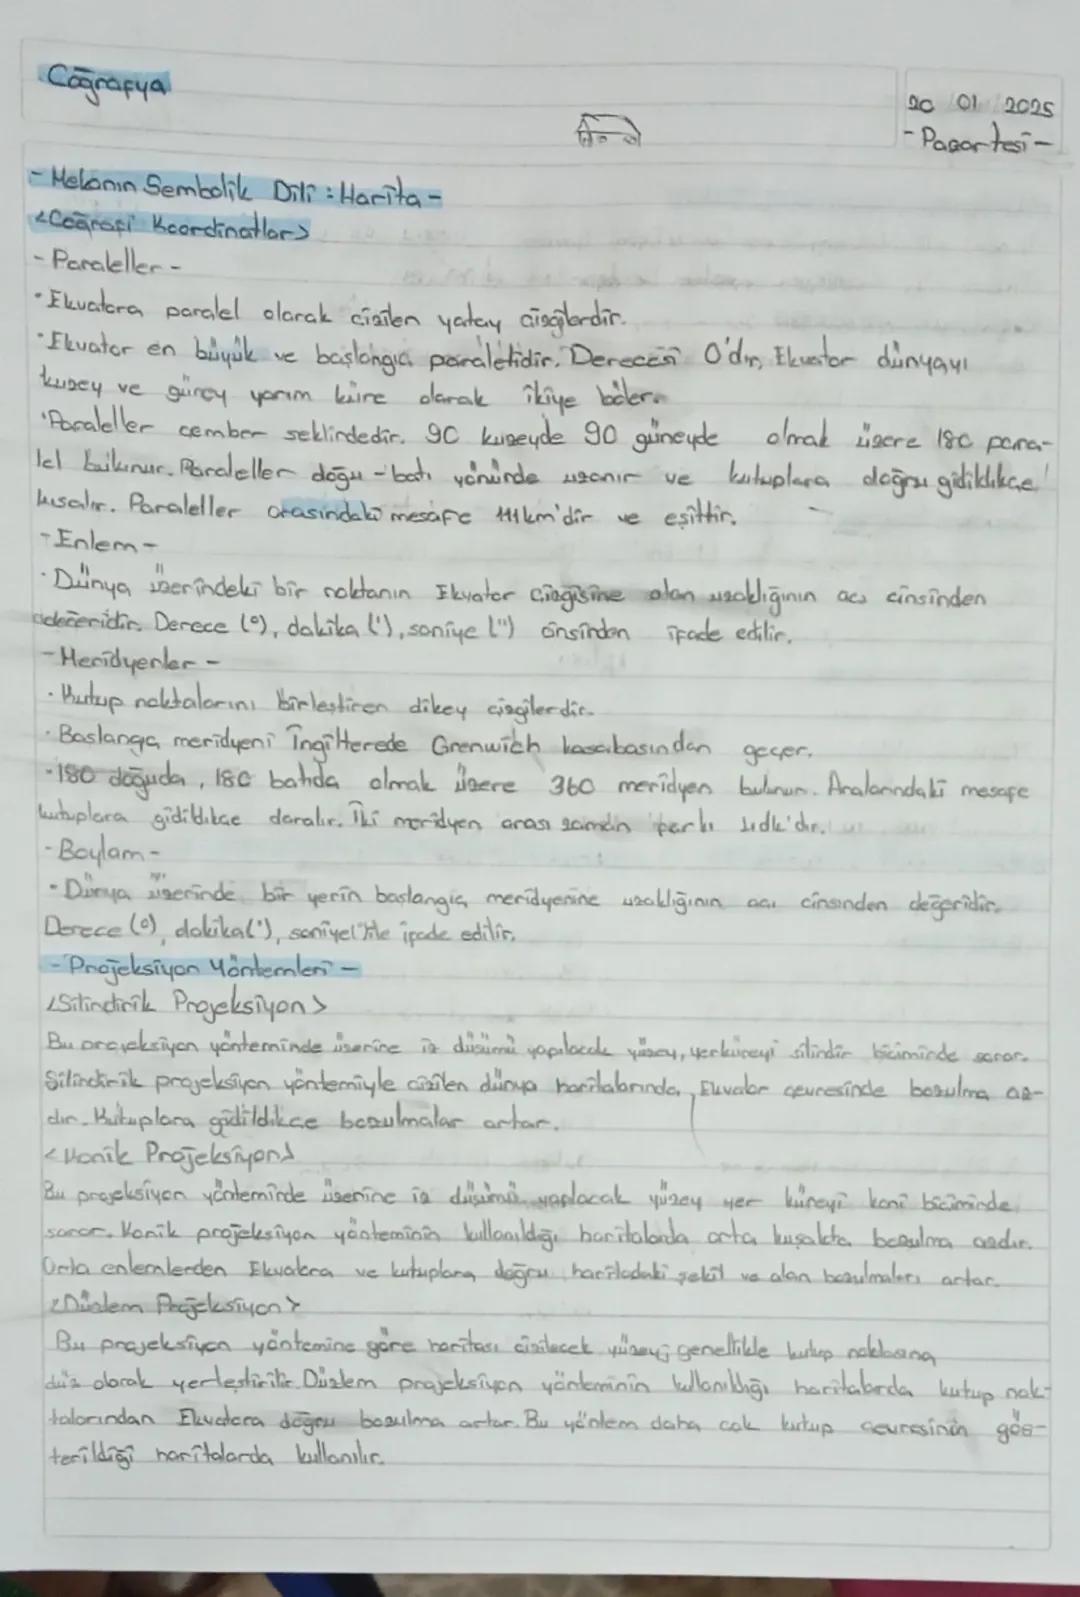 Coğrafya
20 01 2025
-Pazartesi-
- Mekanın Sembolik Dili : Harita -
<Coğrafi Koordinatlar>
- Paraleller -
• Ekvatora paralel olarak çizilen yatay çizgilerdir.
• Ekvator en büyük ve başlangıç paralelidir. Derecesi 0'dır, Ekvator dünyayı
kuzey ve güney yarım küre olarak ikiye böler.
• Paraleller çember seklindedir. 90 kuzeyde 90 güneyde olmak üzere 180 para-
lel bulunur. Paraleller doğu - batı yönünde uzanır ve kutuplara doğru gidildikçe
kısalır. Paraleller arasındaki mesafe 111km'dir ve eşittir.
- Enlem -
• Dünya üzerindeki bir noktanın Ekvator çizgisine olan uzaklığının açı cinsinden
değeridir. Derece (°), dakika ('), saniye (") cinsinden ifade edilir.
- Meridyenler -
• Kutup noktalarını birleştiren dikey çizgilerdir.
• Baslangıç meridyeni İngilterede Grenwich kasabasından geçer.
• 180 doğuda, 180 batıda olmak üzere 360 meridyen bulunur. Aralarındaki mesafe
kutuplara gidildikçe daralır. İki meridyen arası zaman farkı 4dk'dır.
- Boylam -
• Dünya üzerinde bir yerin başlangıç meridyenine uzaklığının açı cinsinden değeridir.
Derece (°), dakika('), saniye(")ile ifade edilir.
- Projeksiyon Yöntemleri -
<Silindirik Projeksiyon>
Bu projeksiyon yönteminde üzerine iz düşümü yapılacak yüzey, yerküreyi silindir biçiminde sarar.
Silindirik projeksiyon yöntemiyle çizilen dünya haritalarında, Ekvator çevresinde bozulma az-
dır. Kutuplara gidildikçe bozulmalar artar.
<Konik Projeksiyon>
Bu projeksiyon yönteminde üzerine iz düşümü yapılacak yüzey yer küreyi koni biçiminde
sarar. Konik projeksiyon yönteminin kullanıldığı haritalarda orta kuşakta bozulma azdır.
Orta enlemlerden Ekvatora ve kutuplara doğru haritadaki şekil ve alan bozulmaları artar.
<Düzlem Projeksiyon>
Bu projeksiyon yöntemine göre haritası çizilecek yüzey, genellikle kutup noktasına
düz olarak yerleştirilir. Düzlem projeksiyon yönteminin kullanıldığı haritalarda kutup nok-
talarından Ekvatora doğru bozulma artar. Bu yöntem daha çok kutup çevresinin gös-
terildiği haritalarda kullanılır.